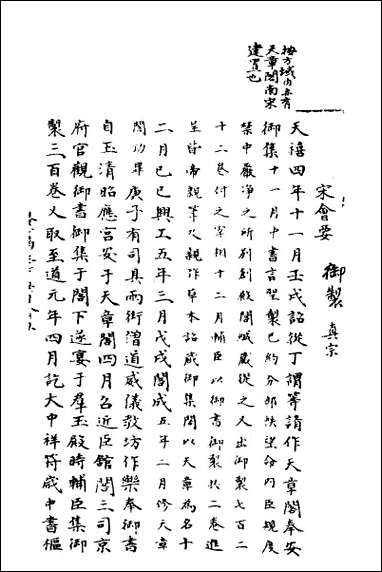 按方域内亦有
天章閣南宋
建置也
宋會要
御製 真宗
天禧四年十一月壬戌詔從丁謂等請作天章閣奉安
御集十一月中書言聖製已約分部帙望令内臣規度
禁中嚴淨之所別創殿閣緘藏從之又出御製七百二
十二卷付之宰相十二月輔臣以御書御製於二卷進
呈皆帝親筆及親作草本詔藏御集閣以天章為名十
二月己巳興工五年三月戊戌閣成五年二月修天章
閣功畢庚子有司具兩街僧道威儀教坊作樂奉御書
自玉清昭應宫安于天章閣四月召近臣館閣三司京
府官觀御書御集于閣下遂宴于羣玉殿時輔臣集御
製三百卷又取至道元年四月訖大中祥符歲中書樞